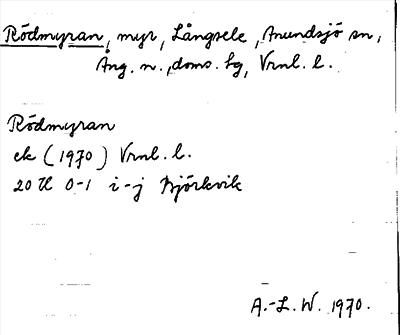 Rödmyran, myr, Långsele, Anundsjö sn,
Ång. n. doms. bg, Vrnl. l.
Rödmyran
ek (1970) Vrnl. l.
20 H 0-1 i-j Björkvik
A.-L. W. 1970.